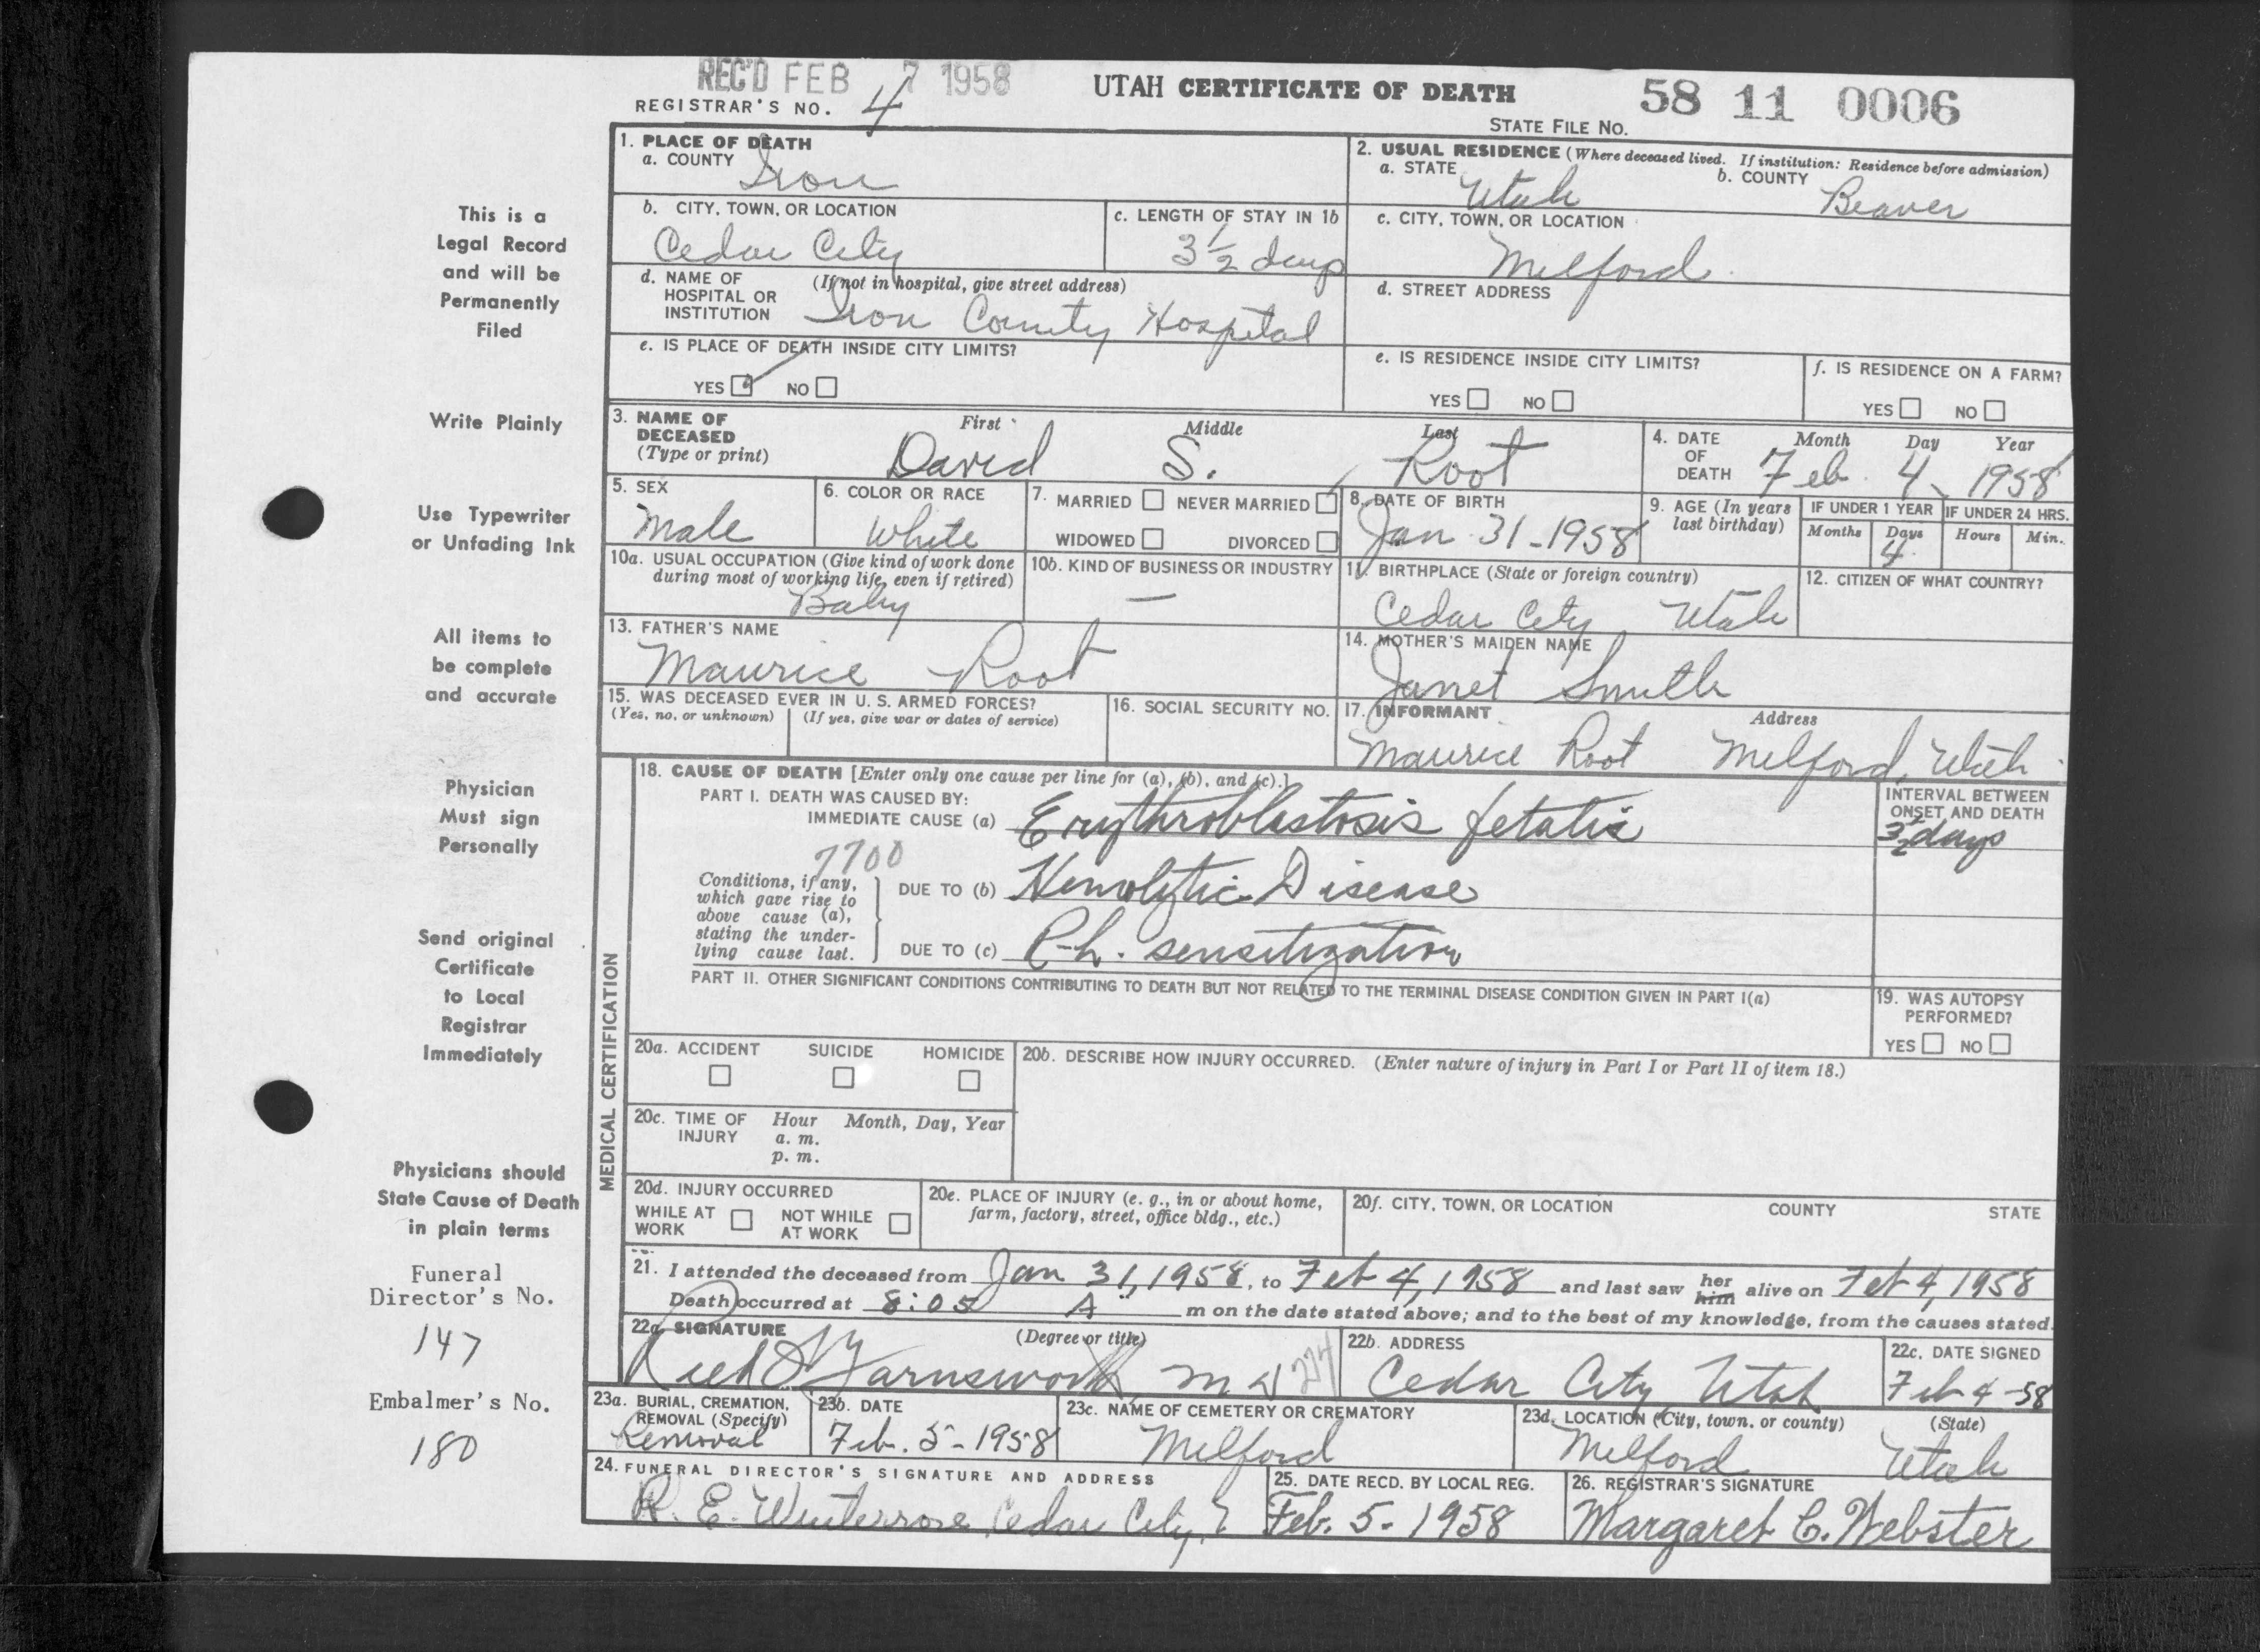 REC'D FEB 7 1958
UTAH CERTIFICATE OF DEATH
58 11 0006
REGISTRAR'S NO. 4
STATE FILE NO.
This is a
Legal Record
and will be
Permanently
Filed
Write Plainly
Use Typewriter
or Unfading Ink
All items to
be complete
and accurate
Physician
Must sign
Personally
Send original
Certificate
to Local
Registrar
Immediately
Physicians should
State Cause of Death
in plain terms
Funeral
Director's No.
147
Embalmer's No.
180
1. PLACE OF DEATH
a. COUNTY Iron
2. USUAL RESIDENCE (Where deceased lived. If institution: Residence before admission)
a. STATE Utah b. COUNTY Beaver
b. CITY, TOWN, OR LOCATION
Cedar City
c. LENGTH OF STAY IN 1b
3 1/2 days
c. CITY, TOWN, OR LOCATION
Milford
d. NAME OF (If not in hospital, give street address)
HOSPITAL OR
INSTITUTION Iron County Hospital
d. STREET ADDRESS
e. IS PLACE OF DEATH INSIDE CITY LIMITS?
YES NO
e. IS RESIDENCE INSIDE CITY LIMITS?
YES NO
f. IS RESIDENCE ON A FARM?
YES NO
3. NAME OF First Middle Last
DECEASED
(Type or print) David S. Root
4. DATE Month Day Year
OF
DEATH Feb. 4, 1958
5. SEX
Male
6. COLOR OR RACE
White
7. MARRIED NEVER MARRIED
WIDOWED DIVORCED
8. DATE OF BIRTH
Jan. 31-1958
9. AGE (In years
last birthday)
IF UNDER 1 YEAR IF UNDER 24 HRS.
Months Days Hours Min.
4
10a. USUAL OCCUPATION (Give kind of work done
during most of working life, even if retired)
Baby
10b. KIND OF BUSINESS OR INDUSTRY
—
11. BIRTHPLACE (State or foreign country)
Cedar City Utah
12. CITIZEN OF WHAT COUNTRY?
13. FATHER'S NAME
Maurice Root
14. MOTHER'S MAIDEN NAME
Janet Smith
15. WAS DECEASED EVER IN U. S. ARMED FORCES?
(Yes, no, or unknown) (If yes, give war or dates of service)
16. SOCIAL SECURITY NO.
17. INFORMANT Address
Maurice Root Milford, Utah
MEDICAL CERTIFICATION
18. CAUSE OF DEATH [Enter only one cause per line for (a), (b), and (c).]
PART I. DEATH WAS CAUSED BY:
IMMEDIATE CAUSE (a) Erythroblastosis fetalis
INTERVAL BETWEEN
ONSET AND DEATH
3 1/2 days
7700
Conditions, if any,
which gave rise to
above cause (a),
stating the under-
lying cause last.
DUE TO (b) Hemolytic Disease
DUE TO (c) Rh. sensitization
PART II. OTHER SIGNIFICANT CONDITIONS CONTRIBUTING TO DEATH BUT NOT RELATED TO THE TERMINAL DISEASE CONDITION GIVEN IN PART I(a)
19. WAS AUTOPSY
PERFORMED?
YES NO
20a. ACCIDENT SUICIDE HOMICIDE
20b. DESCRIBE HOW INJURY OCCURRED. (Enter nature of injury in Part I or Part II of item 18.)
20c. TIME OF Hour Month, Day, Year
INJURY a. m.
p. m.
20d. INJURY OCCURRED
WHILE AT NOT WHILE
WORK AT WORK
20e. PLACE OF INJURY (e. g., in or about home,
farm, factory, street, office bldg., etc.)
20f. CITY, TOWN, OR LOCATION COUNTY STATE
21. I attended the deceased from Jan 31, 1958, to Feb 4, 1958 and last saw her him alive on Feb 4, 1958
Death occurred at 8:05 A m on the date stated above; and to the best of my knowledge, from the causes stated.
22a. SIGNATURE (Degree or title)
Farnsworth, MD
22b. ADDRESS
Cedar City Utah
22c. DATE SIGNED
Feb 4-58
23a. BURIAL, CREMATION,
REMOVAL (Specify)
Removal
23b. DATE
Feb. 5-1958
23c. NAME OF CEMETERY OR CREMATORY
Milford
23d. LOCATION (City, town, or county) (State)
Milford Utah
24. FUNERAL DIRECTOR'S SIGNATURE AND ADDRESS
R. E. Winterrose Cedar City,
25. DATE RECD. BY LOCAL REG.
Feb. 5-1958
26. REGISTRAR'S SIGNATURE
Margaret C. Webster